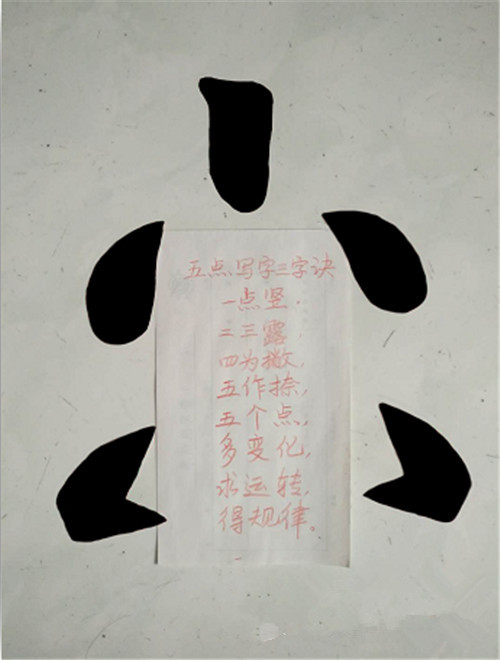 五点写字三字诀
一点竖，
二三露，
四为撇，
五作捺，
五个点，
多变化，
求运转，
得规律。